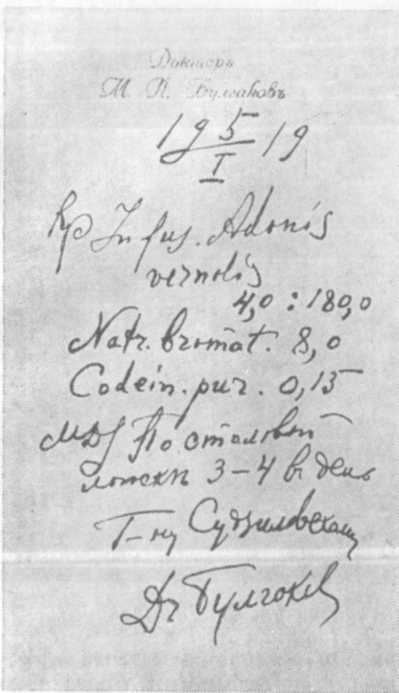 Докторъ
М. А. Булгаковъ
19 5/I 19
Rp Infus. Adonis
vernalis
4,0 : 180,0
Natr. bromat. 8,0
Codein. pur. 0,15
MDS По столовой
ложкѣ 3–4 въ день
Г-ну Судзиловскому
Dr Булгаков